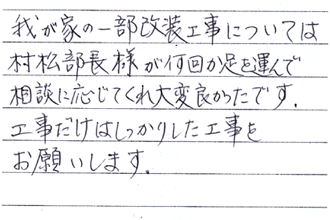 我が家の一部改装工事については
村松部長様が何回か足を運んで
相談に応じてくれ大変良かったです.
工事だけはしっかりした工事を
お願いします.